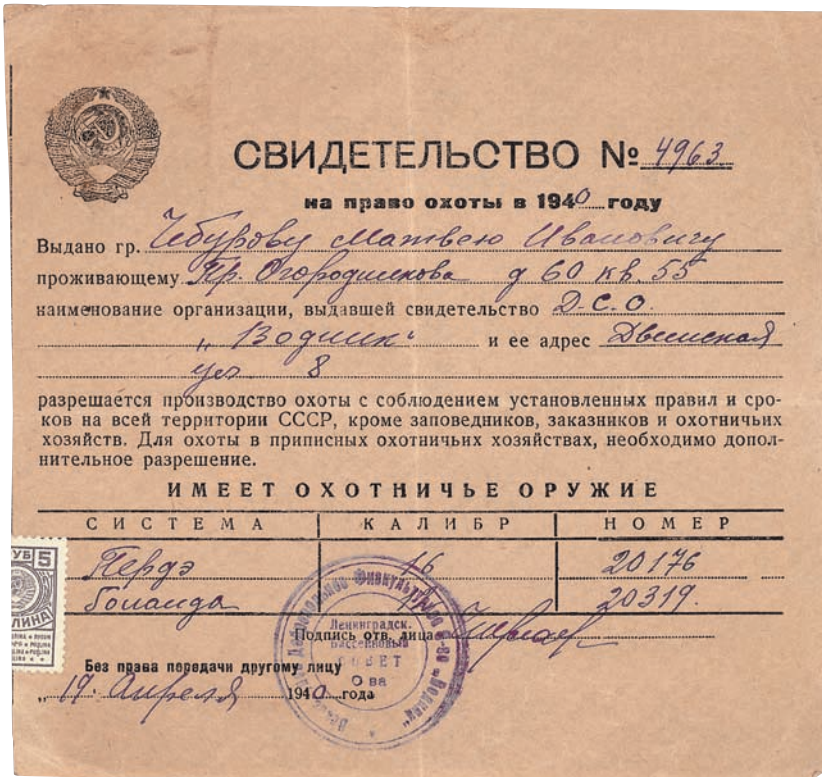 СВИДЕТЕЛЬСТВО № 4963
на право охоты в 1940 году
Выдано гр. Чебурову Матвею Ивановичу
проживающему Пр. Огородникова д 60 кв. 55
наименование организации, выдавшей свидетельство Д.С.О.
„Водник“ и ее адрес Двинская
ул 8
разрешается производство охоты с соблюдением установленных правил и сро-
ков на всей территории СССР, кроме заповедников, заказников и охотничьих
хозяйств. Для охоты в приписных охотничьих хозяйствах, необходимо допол-
нительное разрешение.
ИМЕЕТ ОХОТНИЧЬЕ ОРУЖИЕ
СИСТЕМА КАЛИБР НОМЕР
Пердэ 16 20176
Голанда 20319.
Подпись отв. лица
Без права передачи другому лицу
„19“ Апреля 1940 года
УБ 5
ЛИНА
Добровольное Физкультурное О-во „Водник“
Ленинградск.
Бассейновый
СОВЕТ
О-ва